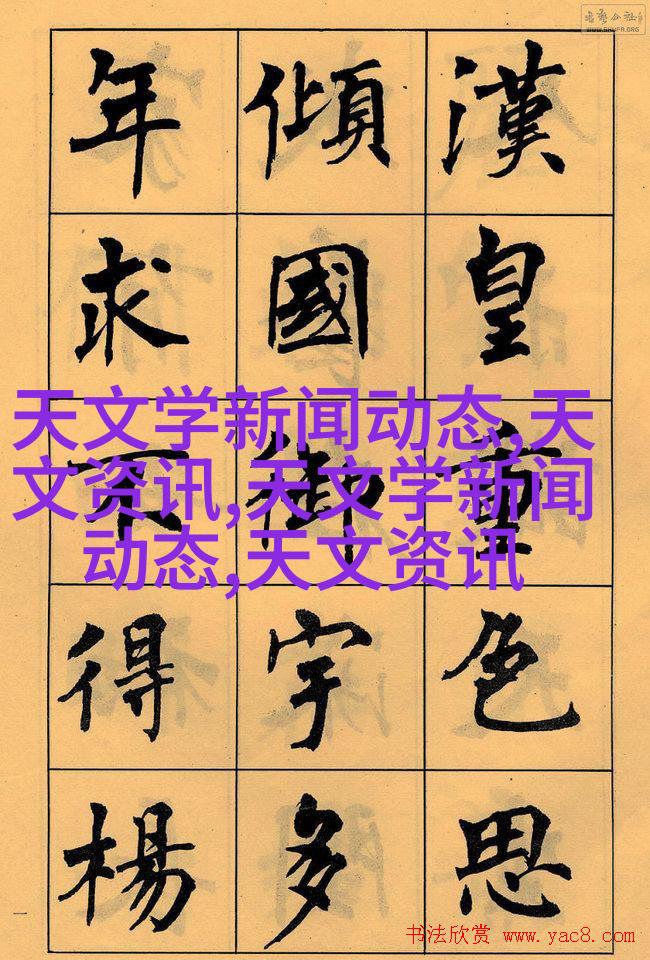 書藝公社
www.SHUFA.ORG
漢皇重色思
傾國御宇多
年求不得楊
天文学新闻动态,天
文资讯,天文学新闻
动态,天文资讯
一
书法欣赏 www.yac8.com